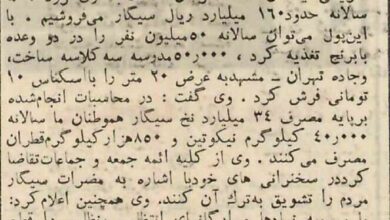 سالانه حدود۱۶۰ میلیارد ریال سیگار می‌فروشیم . با
این‌پول می‌توان سالانه ۵۰میلیون نفر را در دو وعده
بابرنج تغذیه کرد ، ۵۰٫۰۰۰مدرسه سه کلاسه ساخت،
وجاده تهران - مشهدبه عرض ۲۰ متر را بااسکناس ۱۰
تومانی فرش کرد . وی گفت : در محاسبات انجام‌شده
برپایه مصرف ۳۴ میلیارد نخ سیگار هموطنان ما سالانه
۴۰٫۰۰۰ کیلوگرم نیکوتین و ۸۵۰هزارکیلوگرم‌قطران
مصرف می‌کنند . وی از کلیه ائمه جمعه و جماعات‌تقاضا
کرددر سخنرانی های خودبا اشاره به مضرات سیگار
مردم را تشویق به‌ترك آن کنند. وی همچنین اعلام‌کرد: